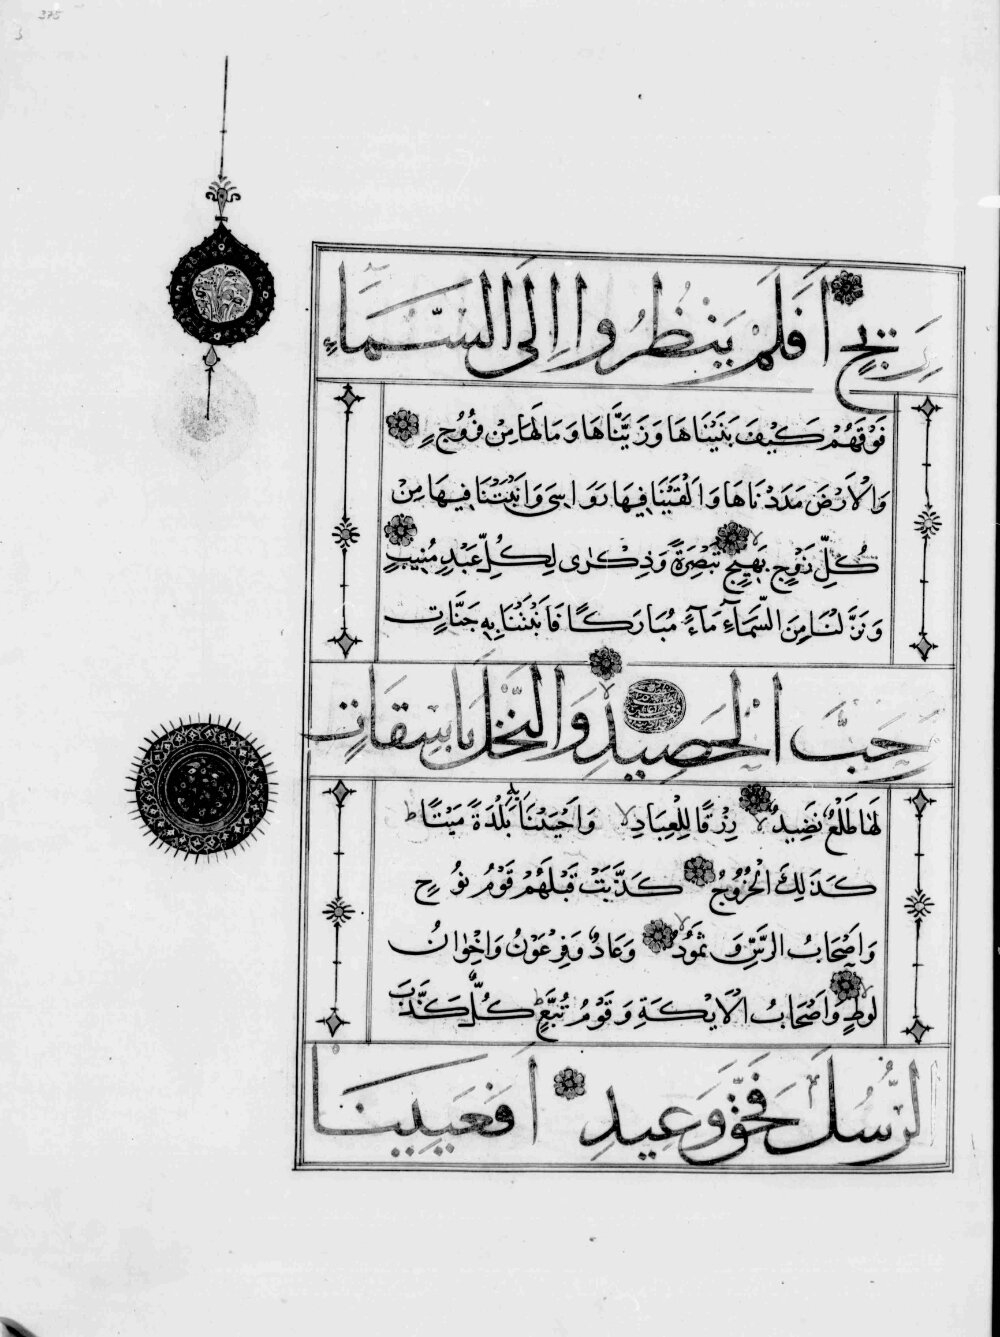 375
مَرِيجٍ اَفَلَمْ يَنْظُرُوا اِلَى السَّمَاءِ
فَوْقَهُمْ كَيْفَ بَنَيْنَاهَا وَزَيَّنَّاهَا وَمَا لَهَا مِنْ فُرُوجٍ
وَالْاَرْضَ مَدَدْنَاهَا وَاَلْقَيْنَا فِيهَا رَوَاسِىَ وَاَنْبَتْنَا فِيهَا مِنْ
كُلِّ زَوْجٍ بَهِيجٍ تَبْصِرَةً وَذِكْرٰى لِكُلِّ عَبْدٍ مُنِيبٍ
وَنَزَّلْنَا مِنَ السَّمَآءِ مَآءً مُبَارَكًا فَاَنْبَتْنَا بِهٖ جَنَّاتٍ
وَحَبَّ الْحَصِيدِ وَالنَّخْلَ بَاسِقَاتٍ
لَهَا طَلْعٌ نَضِيدٌ رِزْقًا لِلْعِبَادِ وَاَحْيَيْنَا بِهٖ بَلْدَةً مَيْتًا
كَذَلِكَ الْخُرُوجُ كَذَّبَتْ قَبْلَهُمْ قَوْمُ نُوحٍ
وَاَصْحَابُ الرَّسِّ وَثَمُودُ وَعَادٌ وَفِرْعَوْنُ وَاِخْوَانُ
لُوطٍ وَاَصْحَابُ الْاَيْكَةِ وَقَوْمُ تُبَّعٍ كُلٌّ كَذَّبَ
الرُّسُلَ فَحَقَّ وَعِيدِ اَفَعَيِينَا